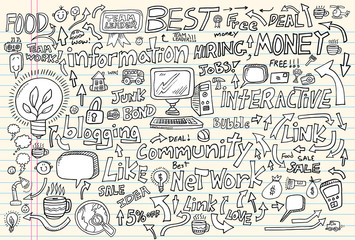 FOOD
TEAM LEADER
BEST
Free
DEAL!
money
TEAM WORK!
information
HIRING
MONEY
JOBS!
FREE!!!
JUNK BOND
INTERACTIVE
blogging
Bubble
LINK
DEAL!
Community
Food SALE
Like
BEST
NETWORK
SALE
SALE
IDEA
Link
5% OFF
LOVE